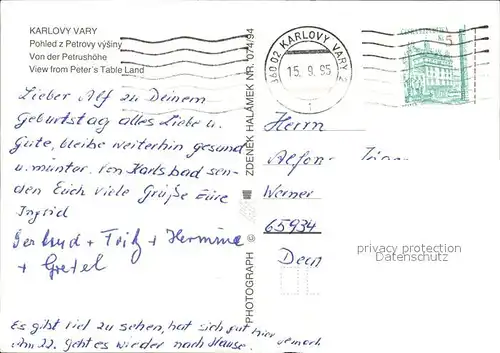 KARLOVY VARY
Pohled z Petrovy výšiny
Von der Petrushöhe
View from Peter's Table Land
Lieber Alf zu Deinem
Geburtstag alles Liebe u.
Gute, bleibe weiterhin gesund
u. munter. Von Karlsbad sen-
den Euch viele Grüße Eure
Ingrid
Gertrud + Fritz + Hermine
+ Gretel
Es gibt viel zu sehen, hat sich gut hier gemacht
Am 22. geht es wieder nach Hause.
PHOTOGRAPH © ZDENEK HALÁMEK NR. 074/94
360 02 KARLOVY VARY 2
15.9.95
5
Herrn
Alfon
Werner
65934
privacy protection
Datenschutz